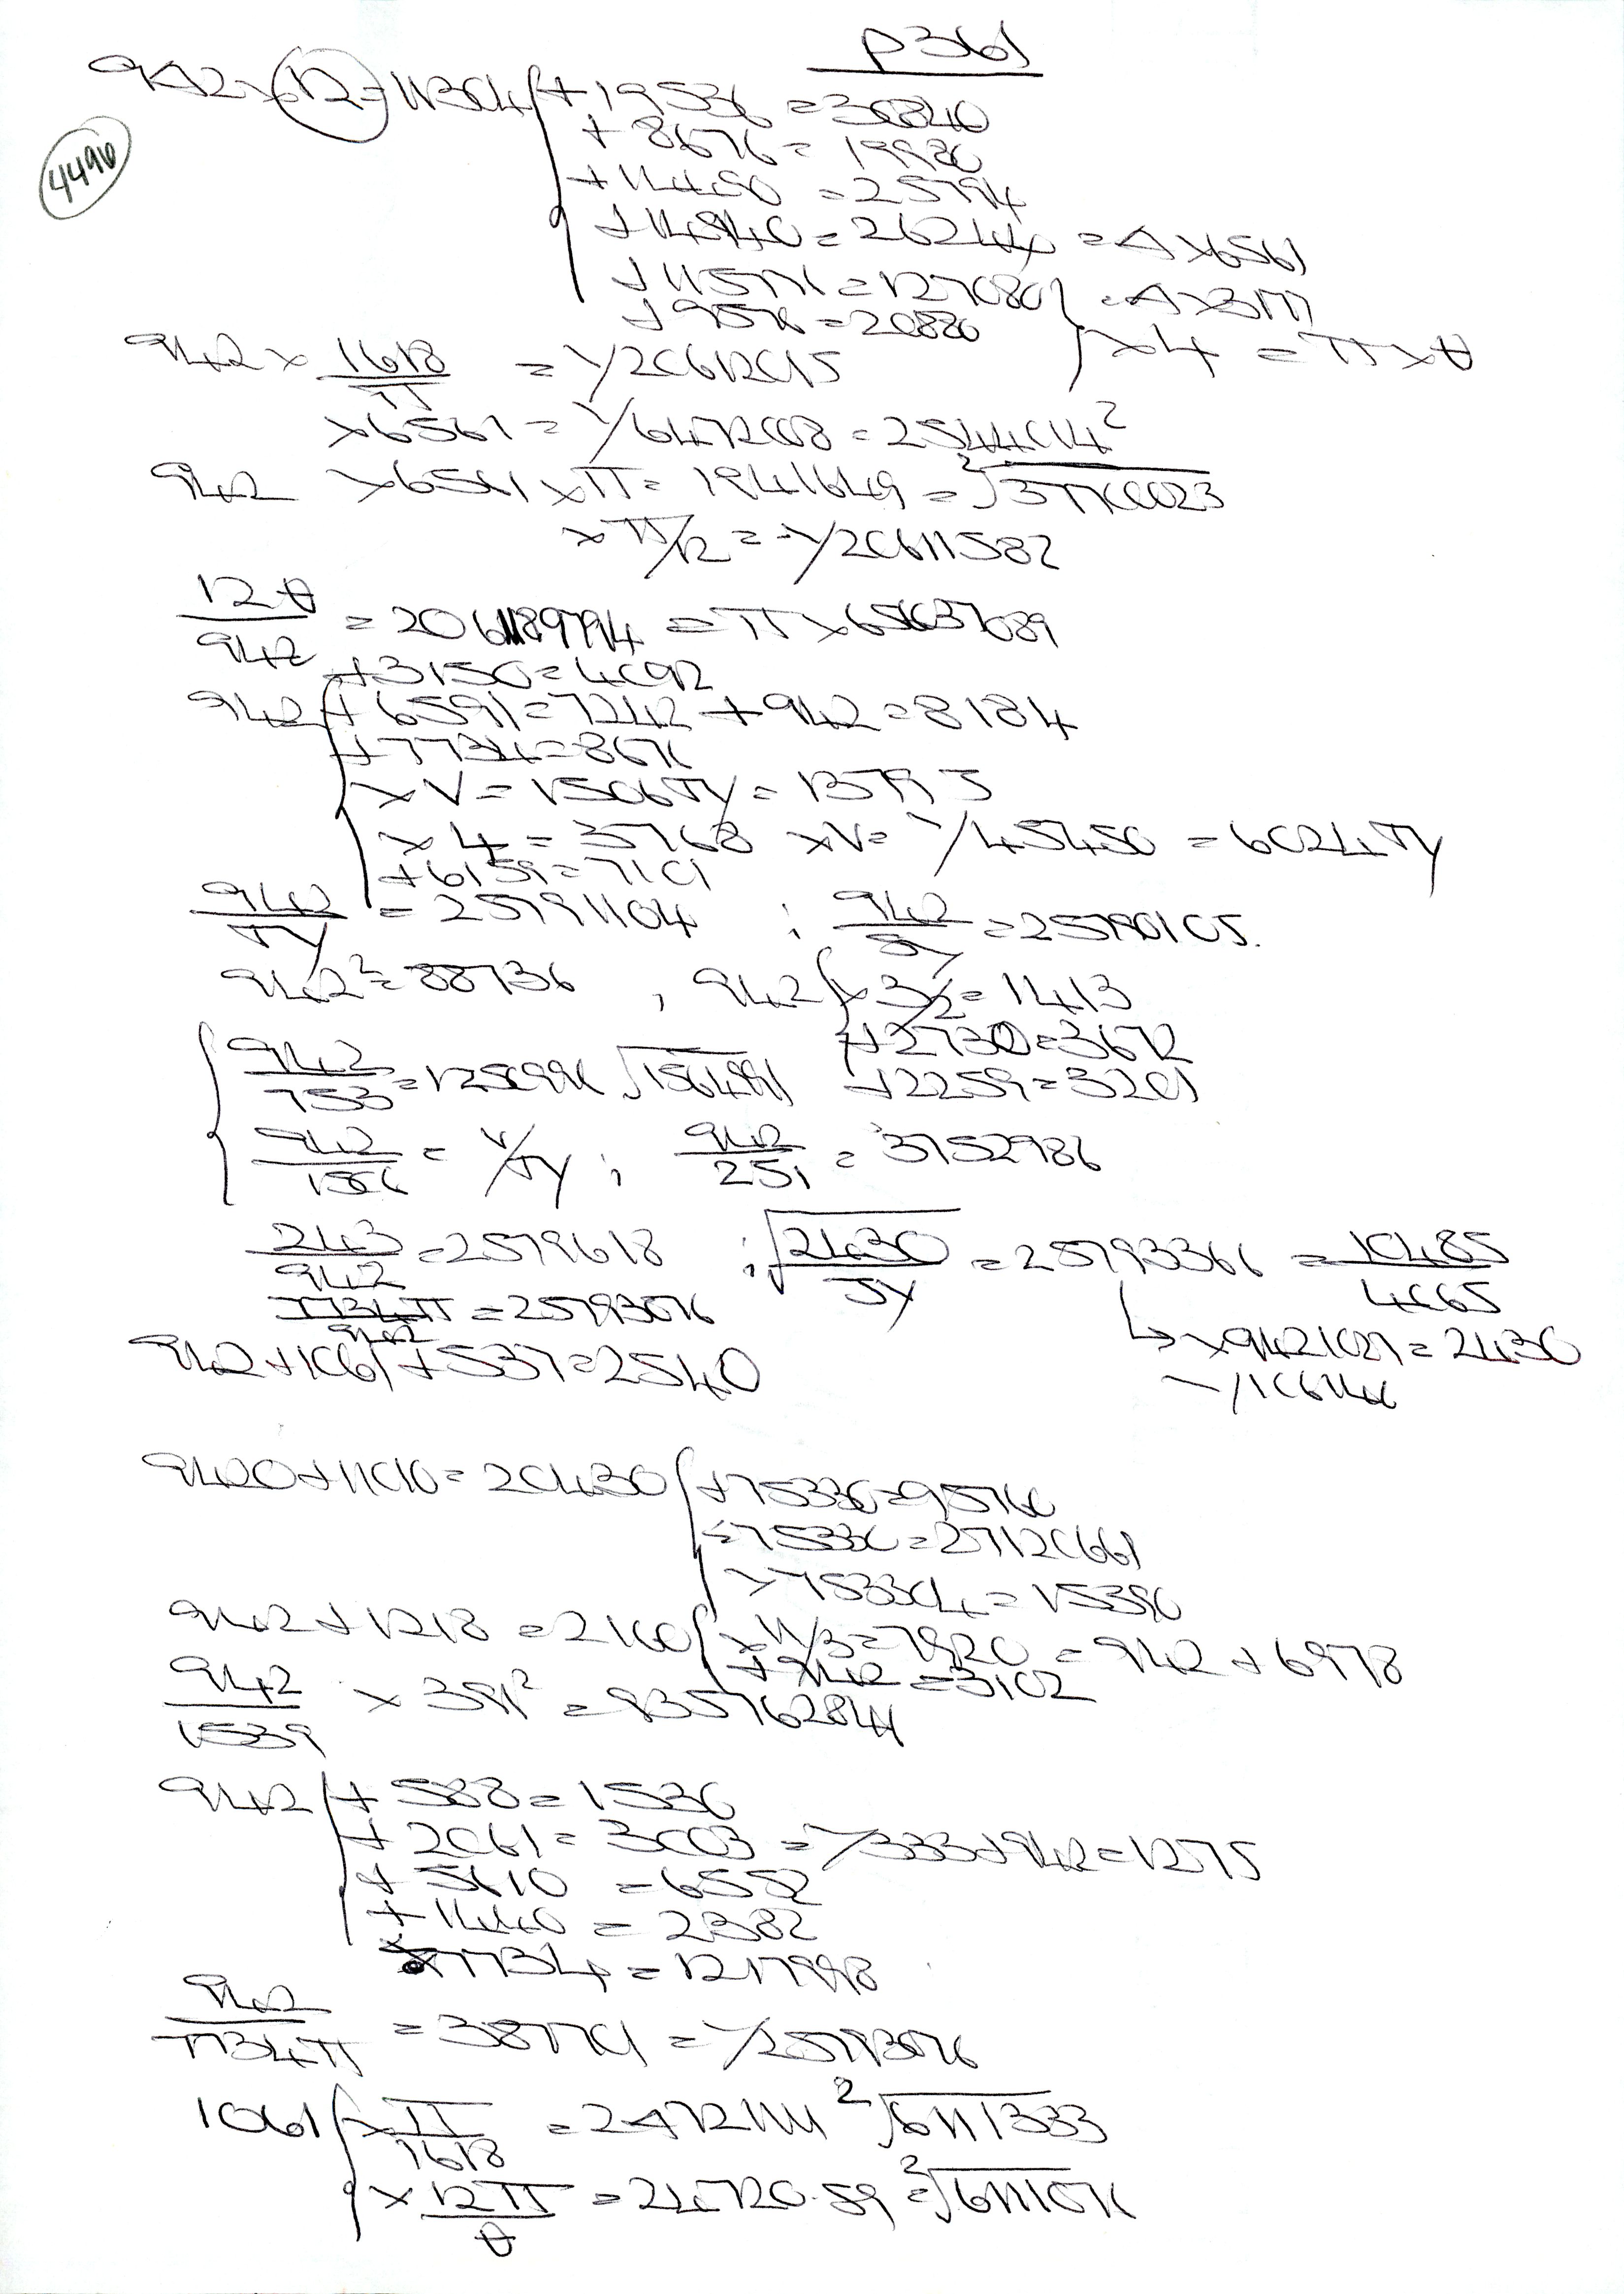 p361
4490
942 × 12 = 11304 { + 19536 = 30840
+ 8676 = 19980
+ 14490 = 25794
+ 14940 = 26244 = 4 × 6561
+ 9576 = 20880
× 4 = π × θ
942 × 1618/π = 1/20612015
× 6561 = 1/6472008 = 2544014²
942 × 6561 × π = 1941649 = ²√3770023
× π/12 = 1/20611582
12θ/942 = 2061189794 = π × 65637089
+ 3150 = 4092
942 { + 6591 = 7242 + 942 = 8184
+ 7734 = 8676
× V = 1506 JY = 1379 J
× 4 = 3768 × V = 1/45450 = 6024 JY
+ 6159 = 7101
942/JY = 25791104 ; 942/JY = 25790105.
942² = 88736 , 942 { × 3/2 = 1413
+ 2730 = 3672
+ 2259 = 3201
942/753 = 1250996 √1564991
942/1506 = V/JY ; 942/251 = 3752986
243/942 = 2579618 ; √2430/JY = 25793366 = 10485/4065
7734π/942 = 25793076
↳ × 9421021 = 2430
942 + 1061 + 537 = 2540
9420 + 11010 = 20430 { + 75330 = 95760
÷ 75330 = 27120661
× 753304 = 15390
942 + 1218 = 2160 { × 11/3 = 7920 = 942 + 6978
+ 942 = 3102
942/1539 × 391² = 935762844
942 { + 588 = 1530
+ 2061 = 3003 = 1/333 + 942 = 1275
+ 5610 = 6552
+ 1440 = 2382
÷ 7734 = 1217998
942/7734π = 387701 = 1/25793076
1061 { × π/1618 = 2472111 ²√6111333
× 12π/θ = 24720.59 = ²√6111076